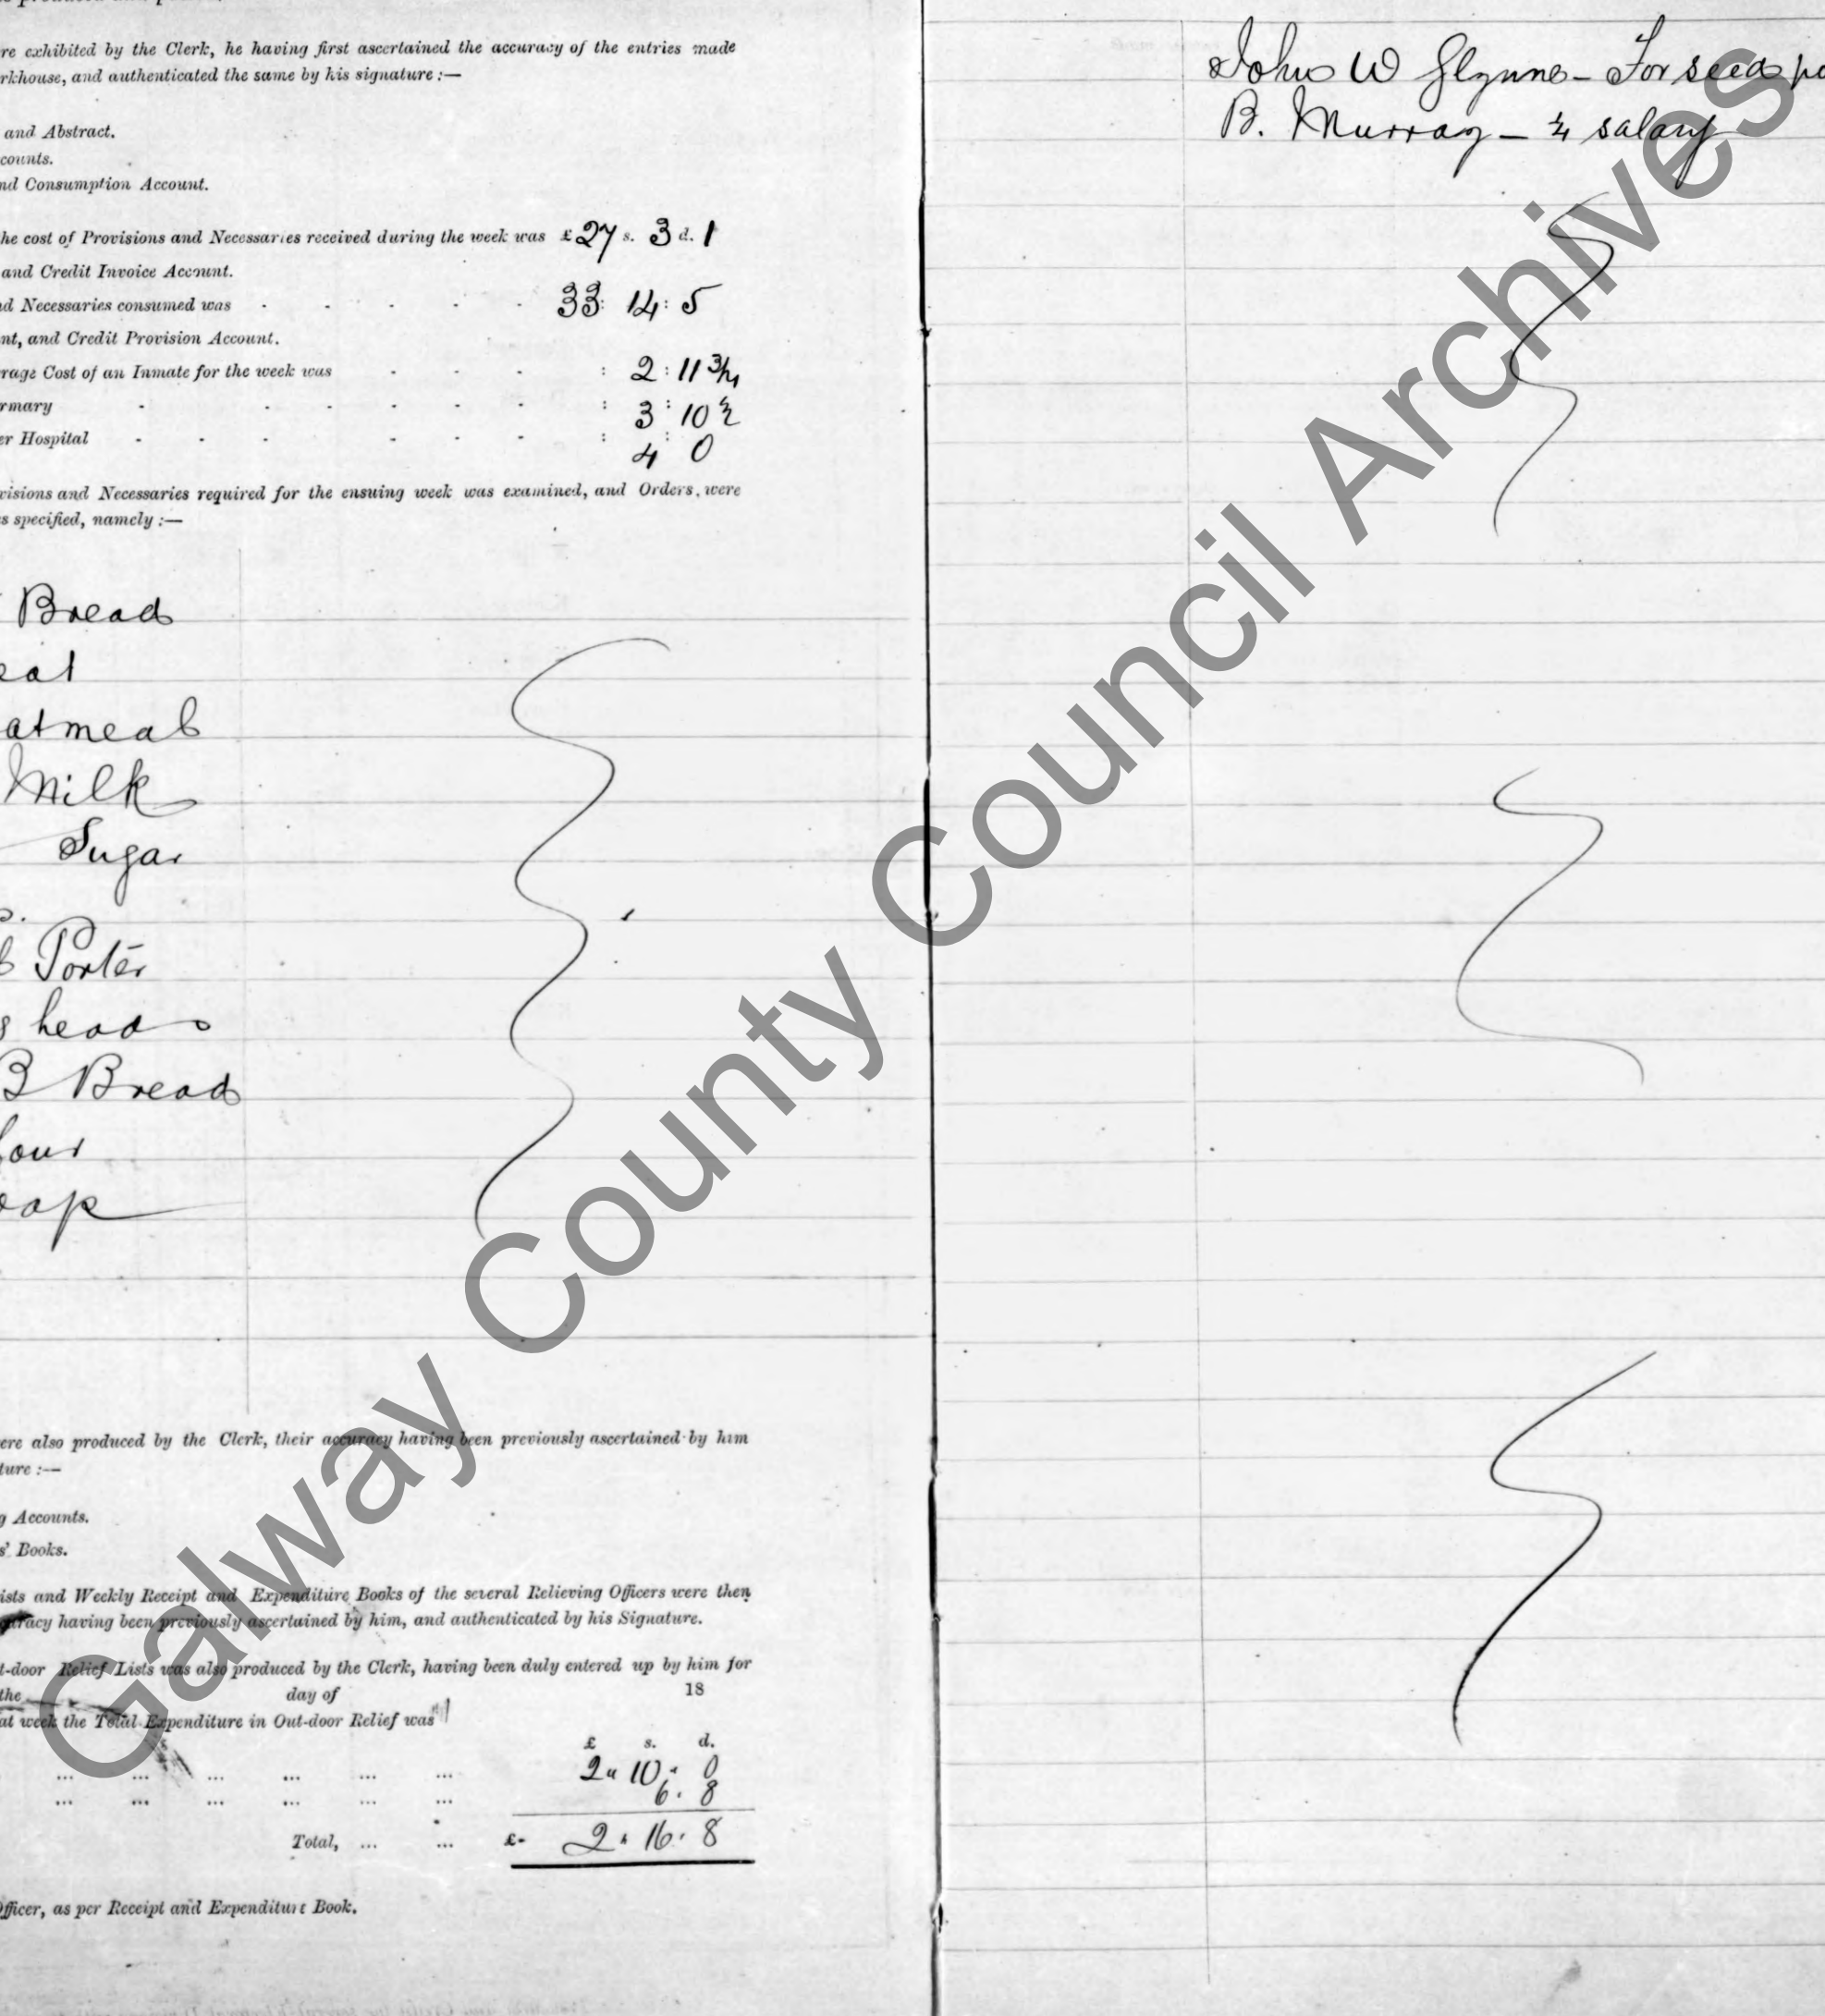 re exhibited by the Clerk, he having first ascertained the accuracy of the entries made
rkhouse, and authenticated the same by his signature :—
and Abstract.
counts.
nd Consumption Account.
he cost of Provisions and Necessaries received during the week was £27 s. 3 d. 1
and Credit Invoice Account.
d Necessaries consumed was - - - - - 33: 14: 5
nt, and Credit Provision Account.
rage Cost of an Inmate for the week was - - - : 2 : 11 3/4
rmary - - - - - - : 3 : 10 ½
er Hospital - - - - - - : 4 : 0
visions and Necessaries required for the ensuing week was examined, and Orders, were
s specified, namely :—
Bread
eat
atmeal
Milk
Sugar
Porter
s heads
B Bread
lour
oap
ere also produced by the Clerk, their accuracy having been previously ascertained by him
ture :—
g Accounts.
s' Books.
ists and Weekly Receipt and Expenditure Books of the several Relieving Officers were then
uracy having been previously ascertained by him, and authenticated by his Signature.
t-door Relief Lists was also produced by the Clerk, having been duly entered up by him for
the day of 18
at week the Total Expenditure in Out-door Relief was
£ s. d.
... ... ... ... ... ... 2 " 10 " 0
... ... ... ... ... ... 6 . 8
Total, ... ... £- 2 . 16 . 8
Officer, as per Receipt and Expenditure Book.
John W Glynne – For seed po
B. Murray – ¼ salary
Galway County Council Archives